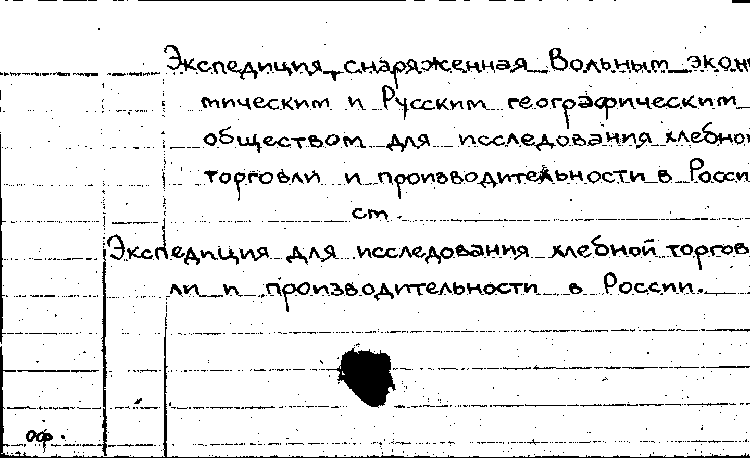 Экспедиция, снаряженная Вольным эконо
мическим и Русским географическим
обществом для исследования хлебной
торговли и производительности в Росси
см.
Экспедиция для исследования хлебной торгов
ли и производительности в России.
оф.